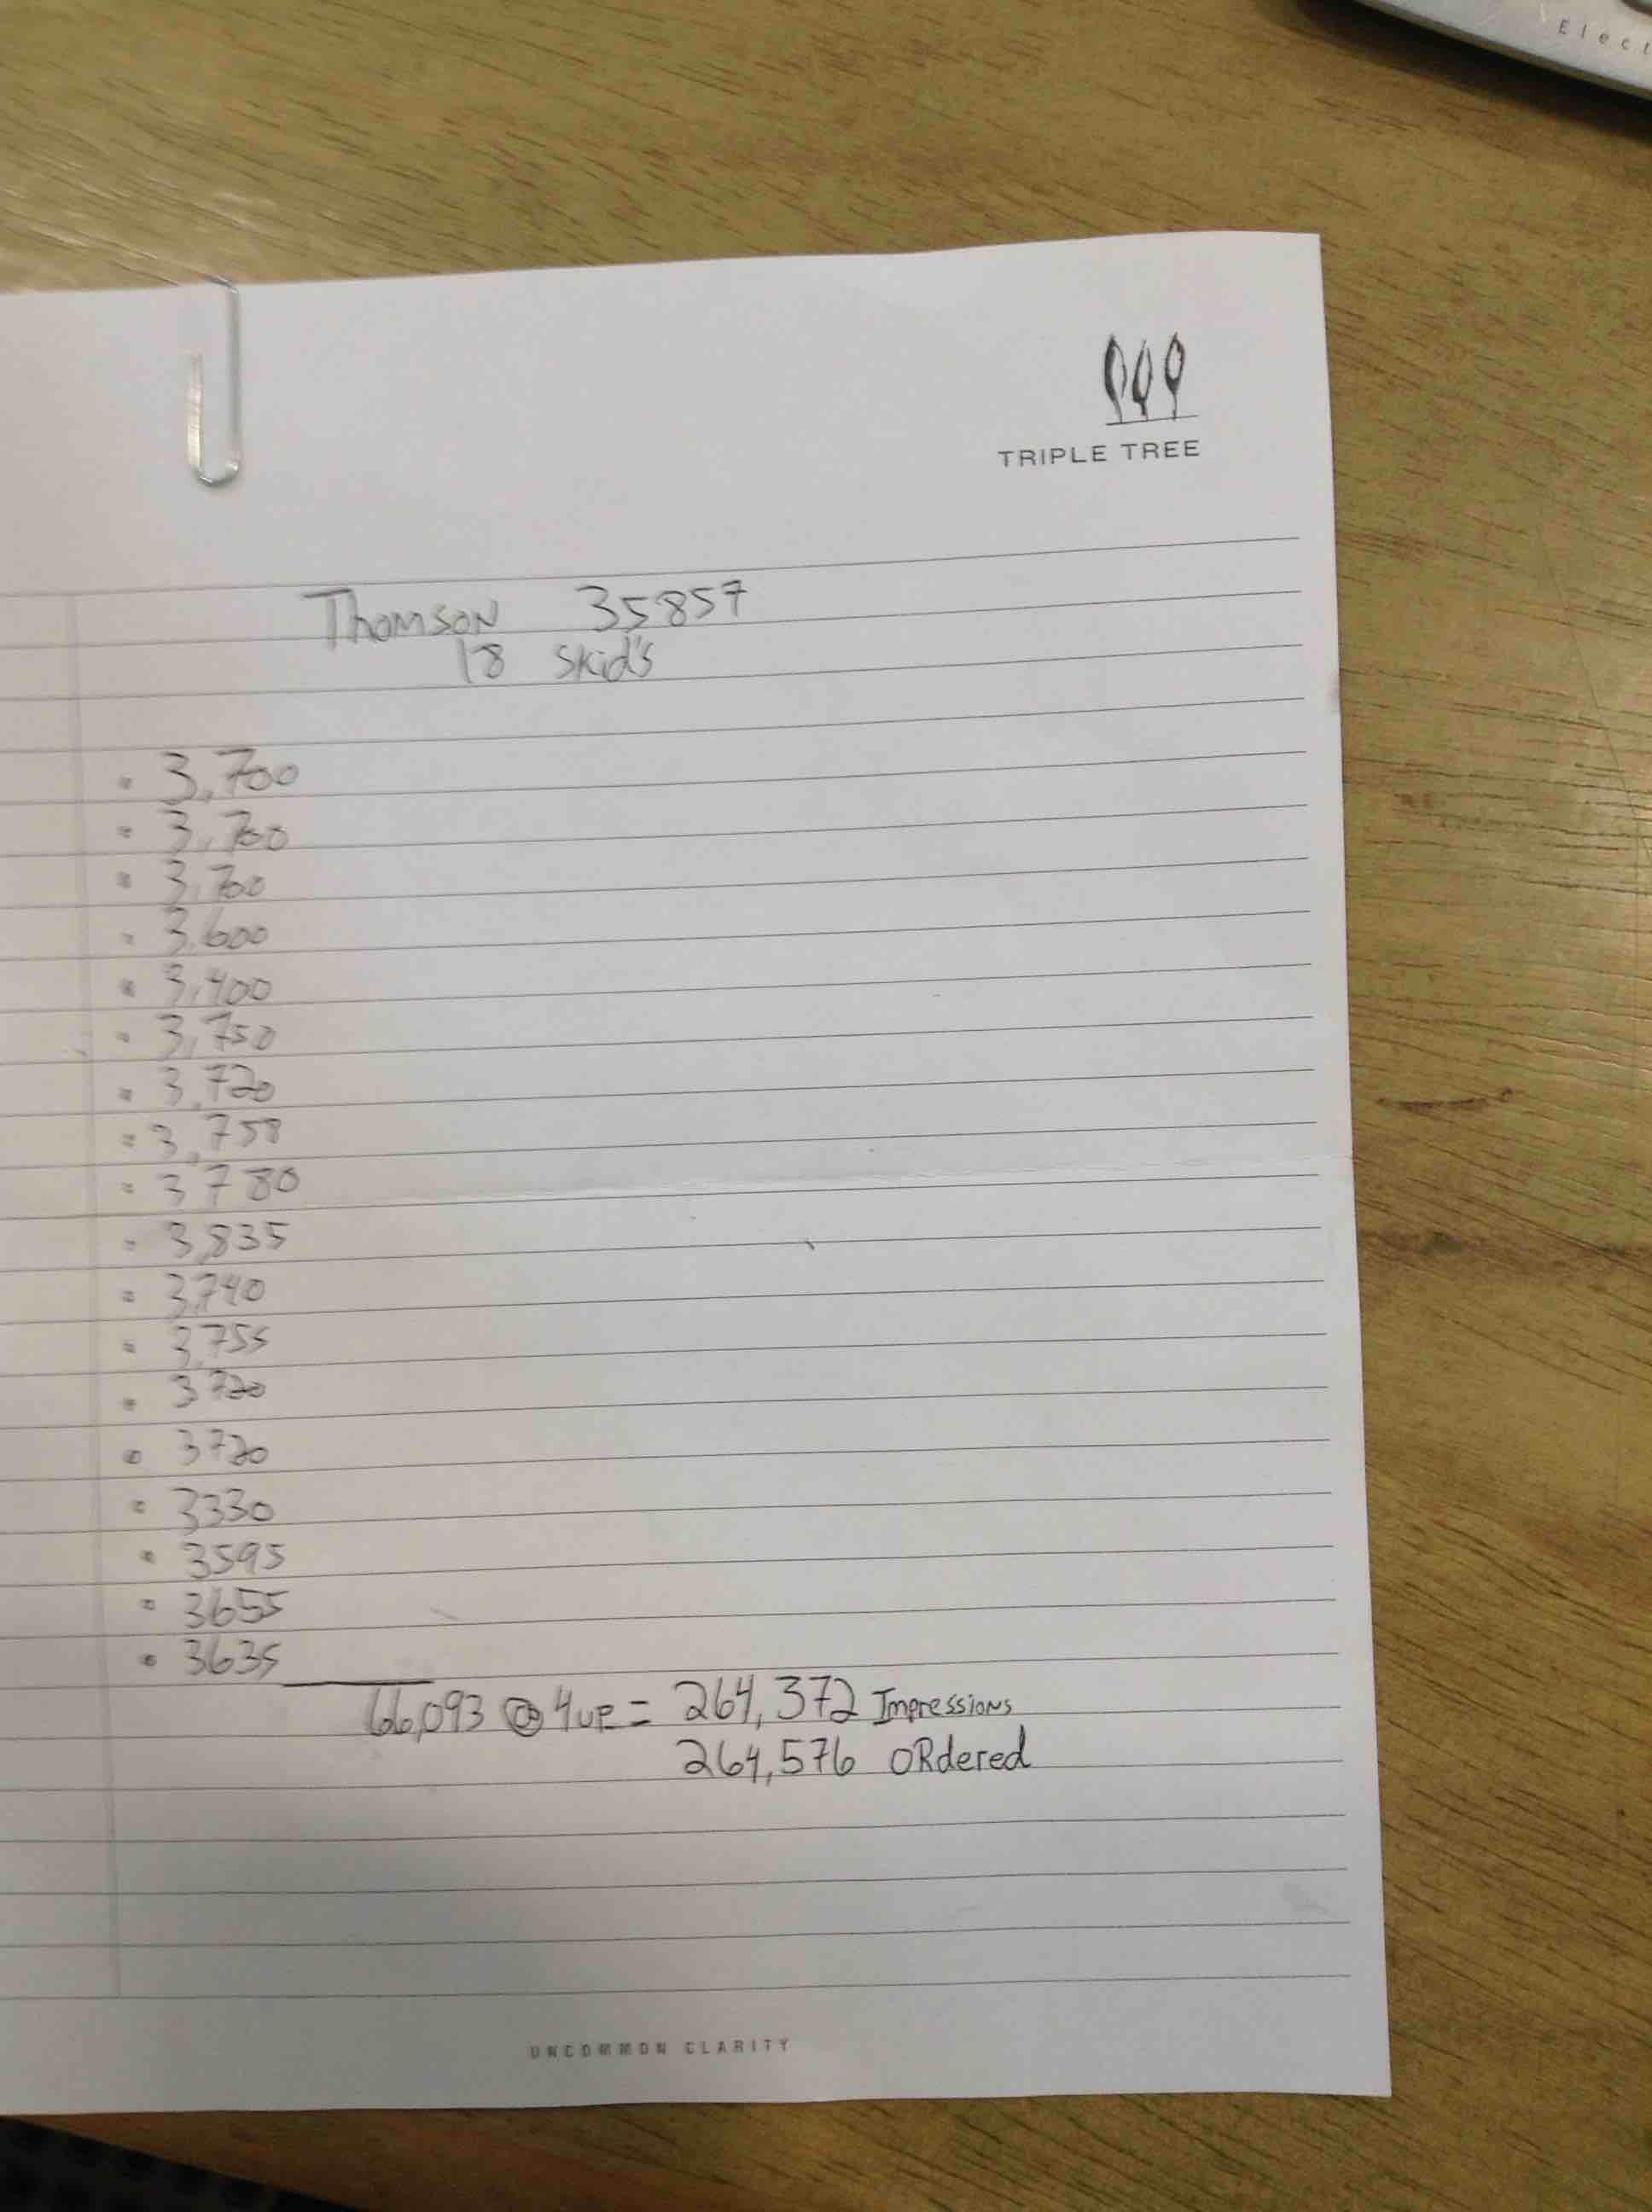 Elect
TRIPLE TREE
Thomson 35857
18 Skid's
3,700
3,700
3,700
3,600
3,400
3,750
3,720
3,758
3780
3,835
3,740
3,755
3720
3720
3330
3595
3655
3635
66,093 @ 4up = 264,372 Impressions
264,576 ORdered
UNCOMMON CLARITY